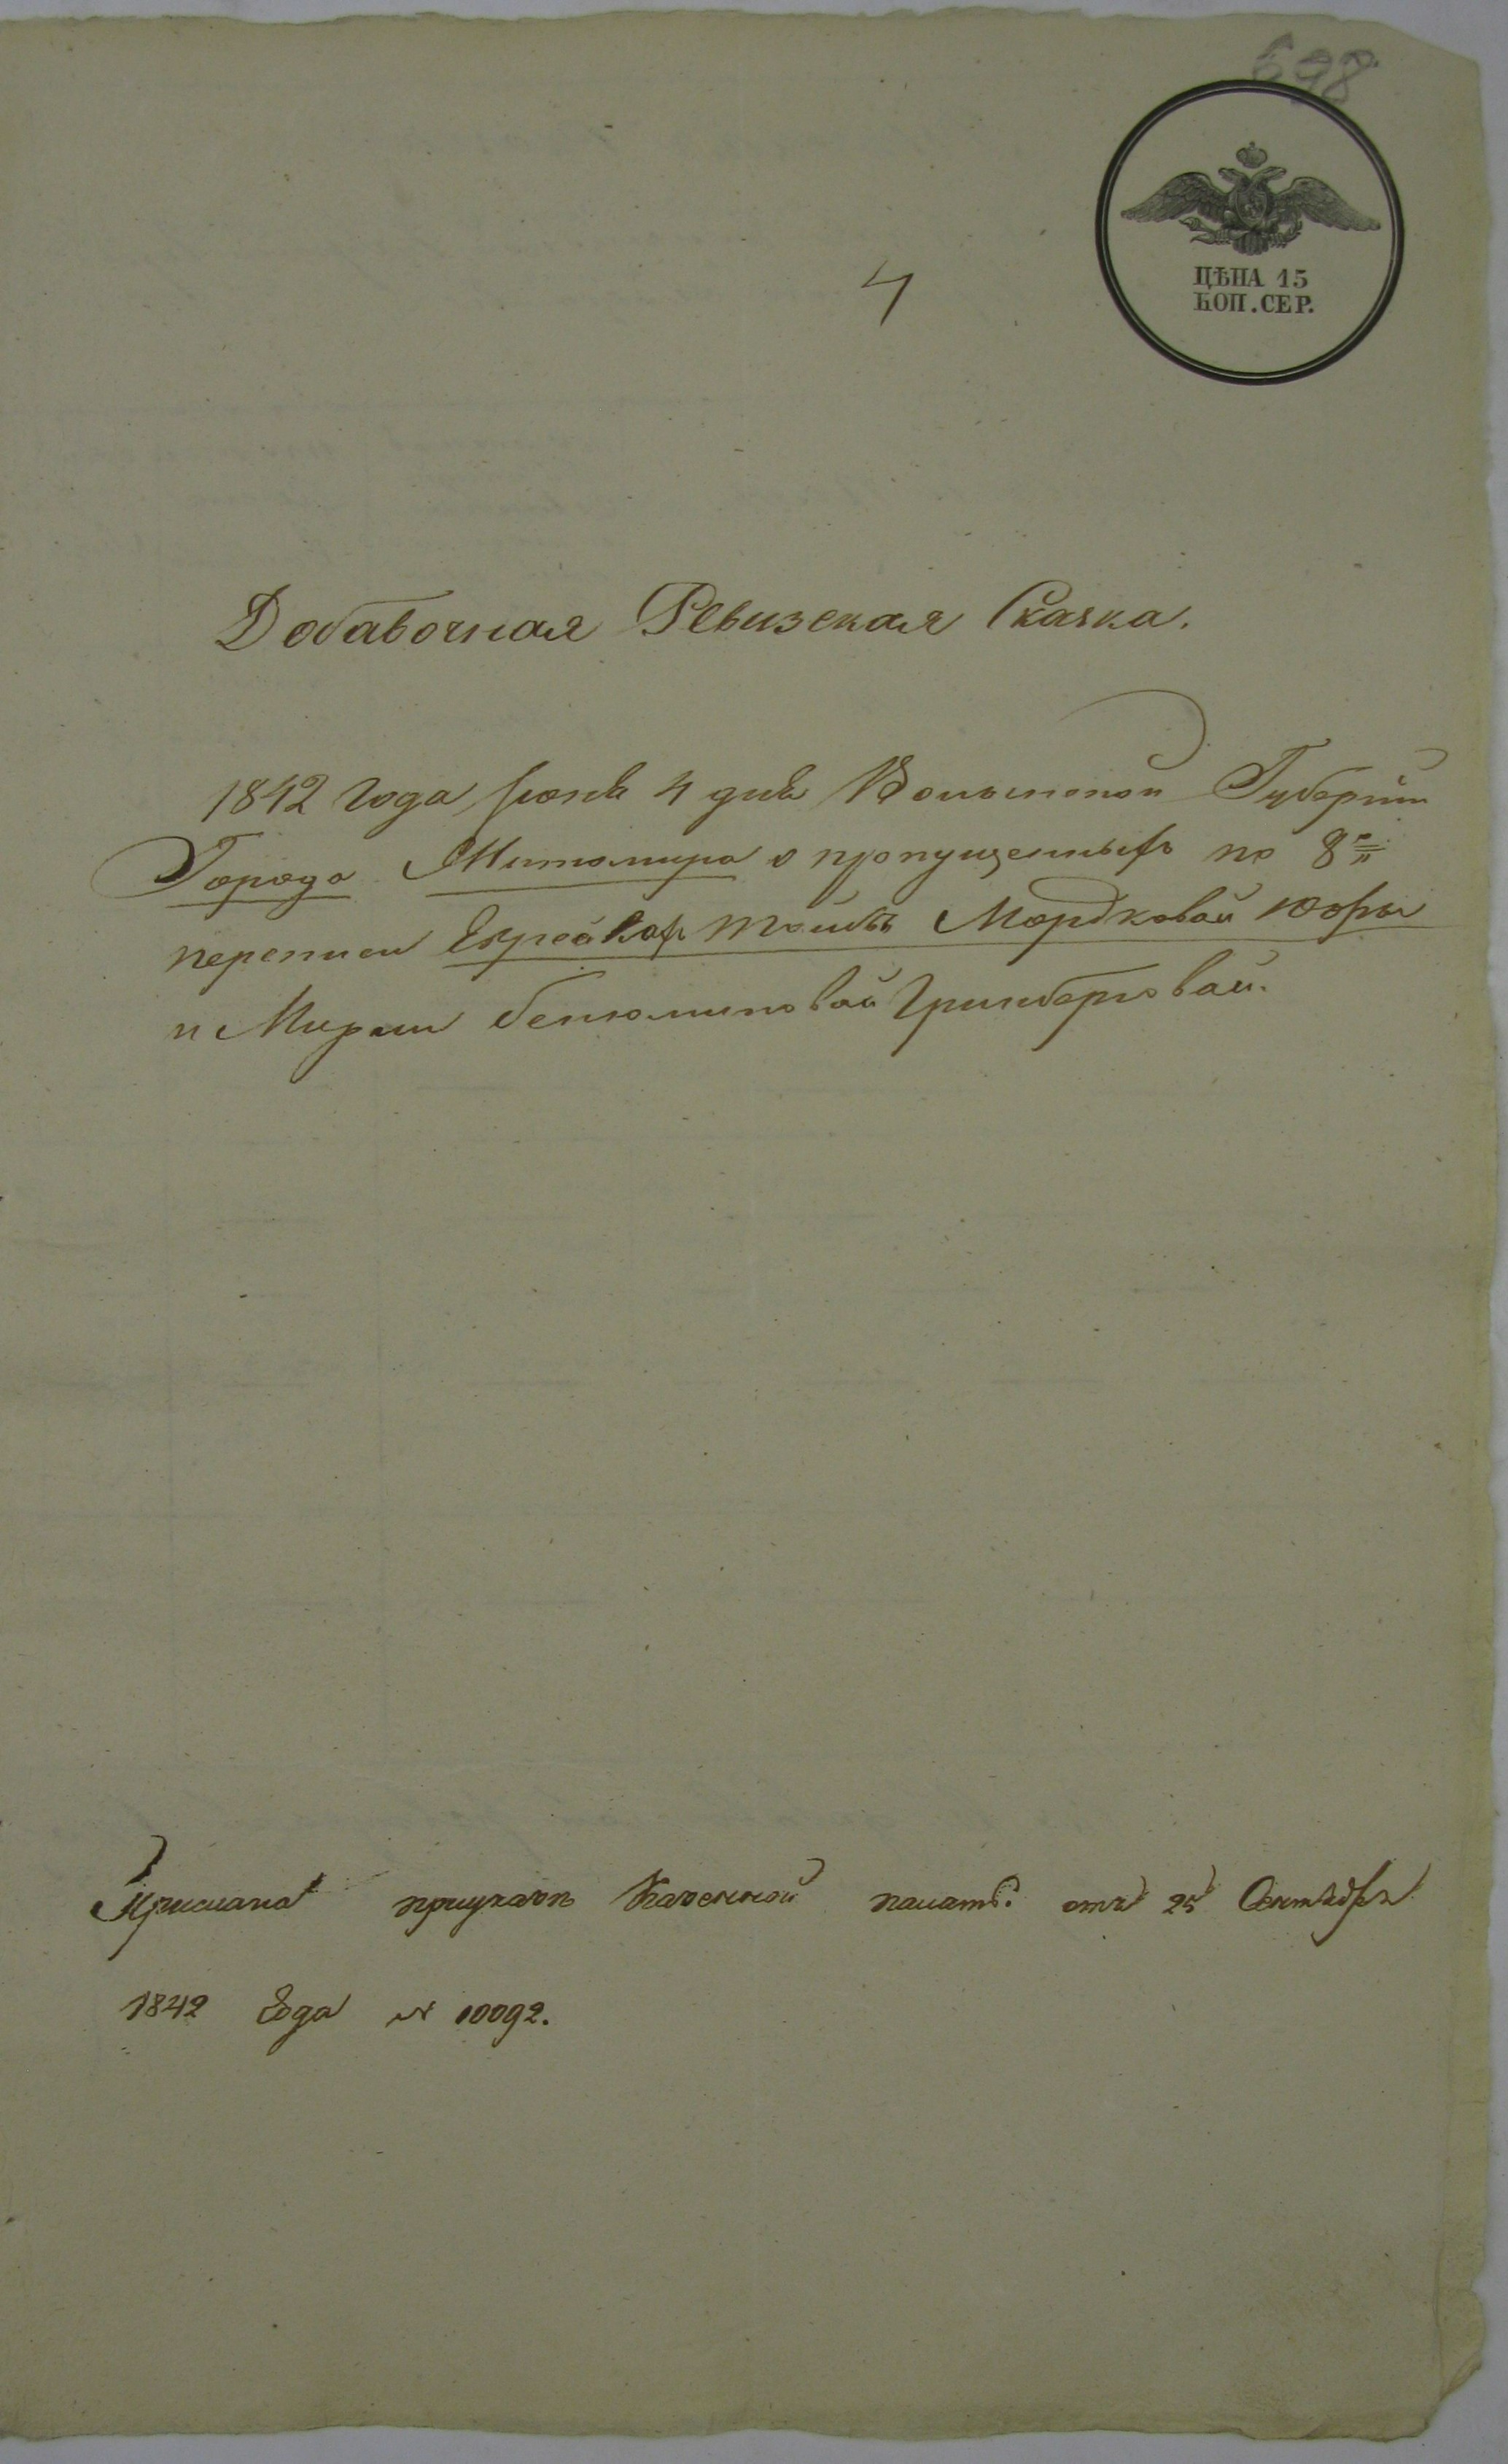 698
ЦѢНА 15
КОП. СЕР.
4
Добавочная Ревизская Сказка.
1842 года Іюня 4 дня Волынской Губерніи
Города Житомира о пропущенныхъ по 8й
переписи Еврейкахъ Тайбѣ Мордковой Юфы
и Мирли Бенюминовай Гринберговай.
Прислана при указѣ Казенной палаты. отъ 25 Сентября
1842 года № 10092.